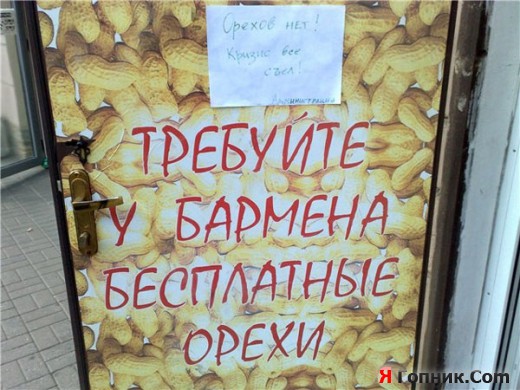 Орехов нет!
Кризис все
съел!
Администрация
ТРЕБУЙТЕ
У БАРМЕНА
БЕСПЛАТНЫЕ
ОРЕХИ
ЯГопник.Com